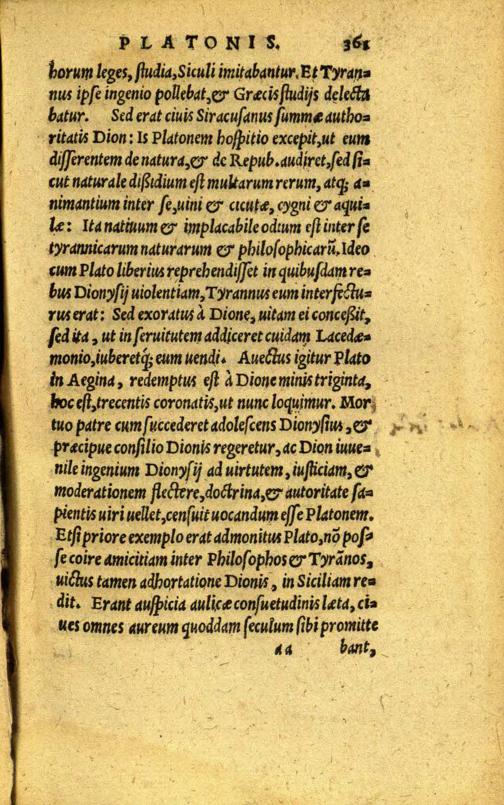 PLATONIS. 361
horum leges, studia, Siculi imitabantur. Et Tyran=
nus ipse ingenio pollebat, & Græcis studijs delecta
batur. Sed erat ciuis Siracusanus summæ autho=
ritatis Dion: Is Platonem hospitio excepit, ut eum
disserentem de natura, & de Repub. audiret, sed si=
cut naturale dißidium est multarum rerum, atq; a=
nimantium inter se, uini & cicutæ, cygni & aqui=
læ: Ita natiuum & implacabile odium est inter se
tyrannicarum naturarum & philosophicarũ. Ideo
cum Plato liberius reprehendisset in quibusdam re=
bus Dionysij uiolentiam, Tyrannus eum interfectu=
rus erat: Sed exoratus à Dione, uitam ei conceßit,
sed ita, ut in seruitutem addiceret cuidam Lacedæ=
monio, iuberetq; eum uendi. Auectus igitur Plato
in Aegina, redemptus est à Dione minis triginta,
hoc est, trecentis coronatis, ut nunc loquimur. Mor
tuo patre cum succederet adolescens Dionysius, &
præcipue consilio Dionis regeretur, ac Dion iuue=
nile ingenium Dionysij ad uirtutem, iusticiam, &
moderationem flectere, doctrina, & autoritate sa=
pientis uiri uellet, censuit uocandum esse Platonem.
Etsi priore exemplo erat admonitus Plato, nõ pos=
se coire amicitiam inter Philosophos & Tyrãnos,
uictus tamen adhortatione Dionis, in Siciliam re=
dit. Erant auspicia aulicæ consuetudinis læta, ci=
ues omnes aureum quoddam seculum sibi promitte
aa bant,